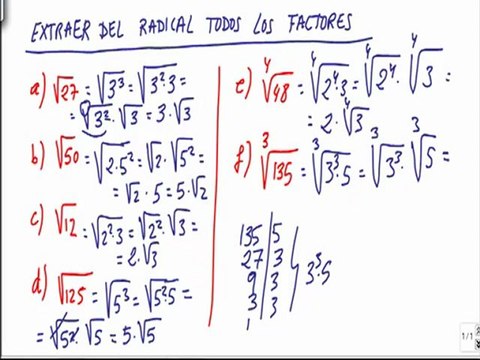 EXTRAER DEL RADICAL TODOS LOS FACTORES
a) √27 = √3³ = √3²·3 =
= √3² · √3 = 3·√3
b) √50 = √2·5² = √2·√5² =
= √2 · 5 = 5·√2
c) √12 = √2²·3 = √2²·√3 =
= 2·√3
d) √125 = √5³ = √5²·5 =
= √5² · √5 = 5·√5
e) ⁴√48 = ⁴√2⁴·3 = ⁴√2⁴ · ⁴√3 =
= 2·⁴√3
f) ³√135 = ³√3³·5 = ³√3³ · ³√5 =
135 | 5
27 | 3
9 | 3
3 | 3
1
3³·5
1/1